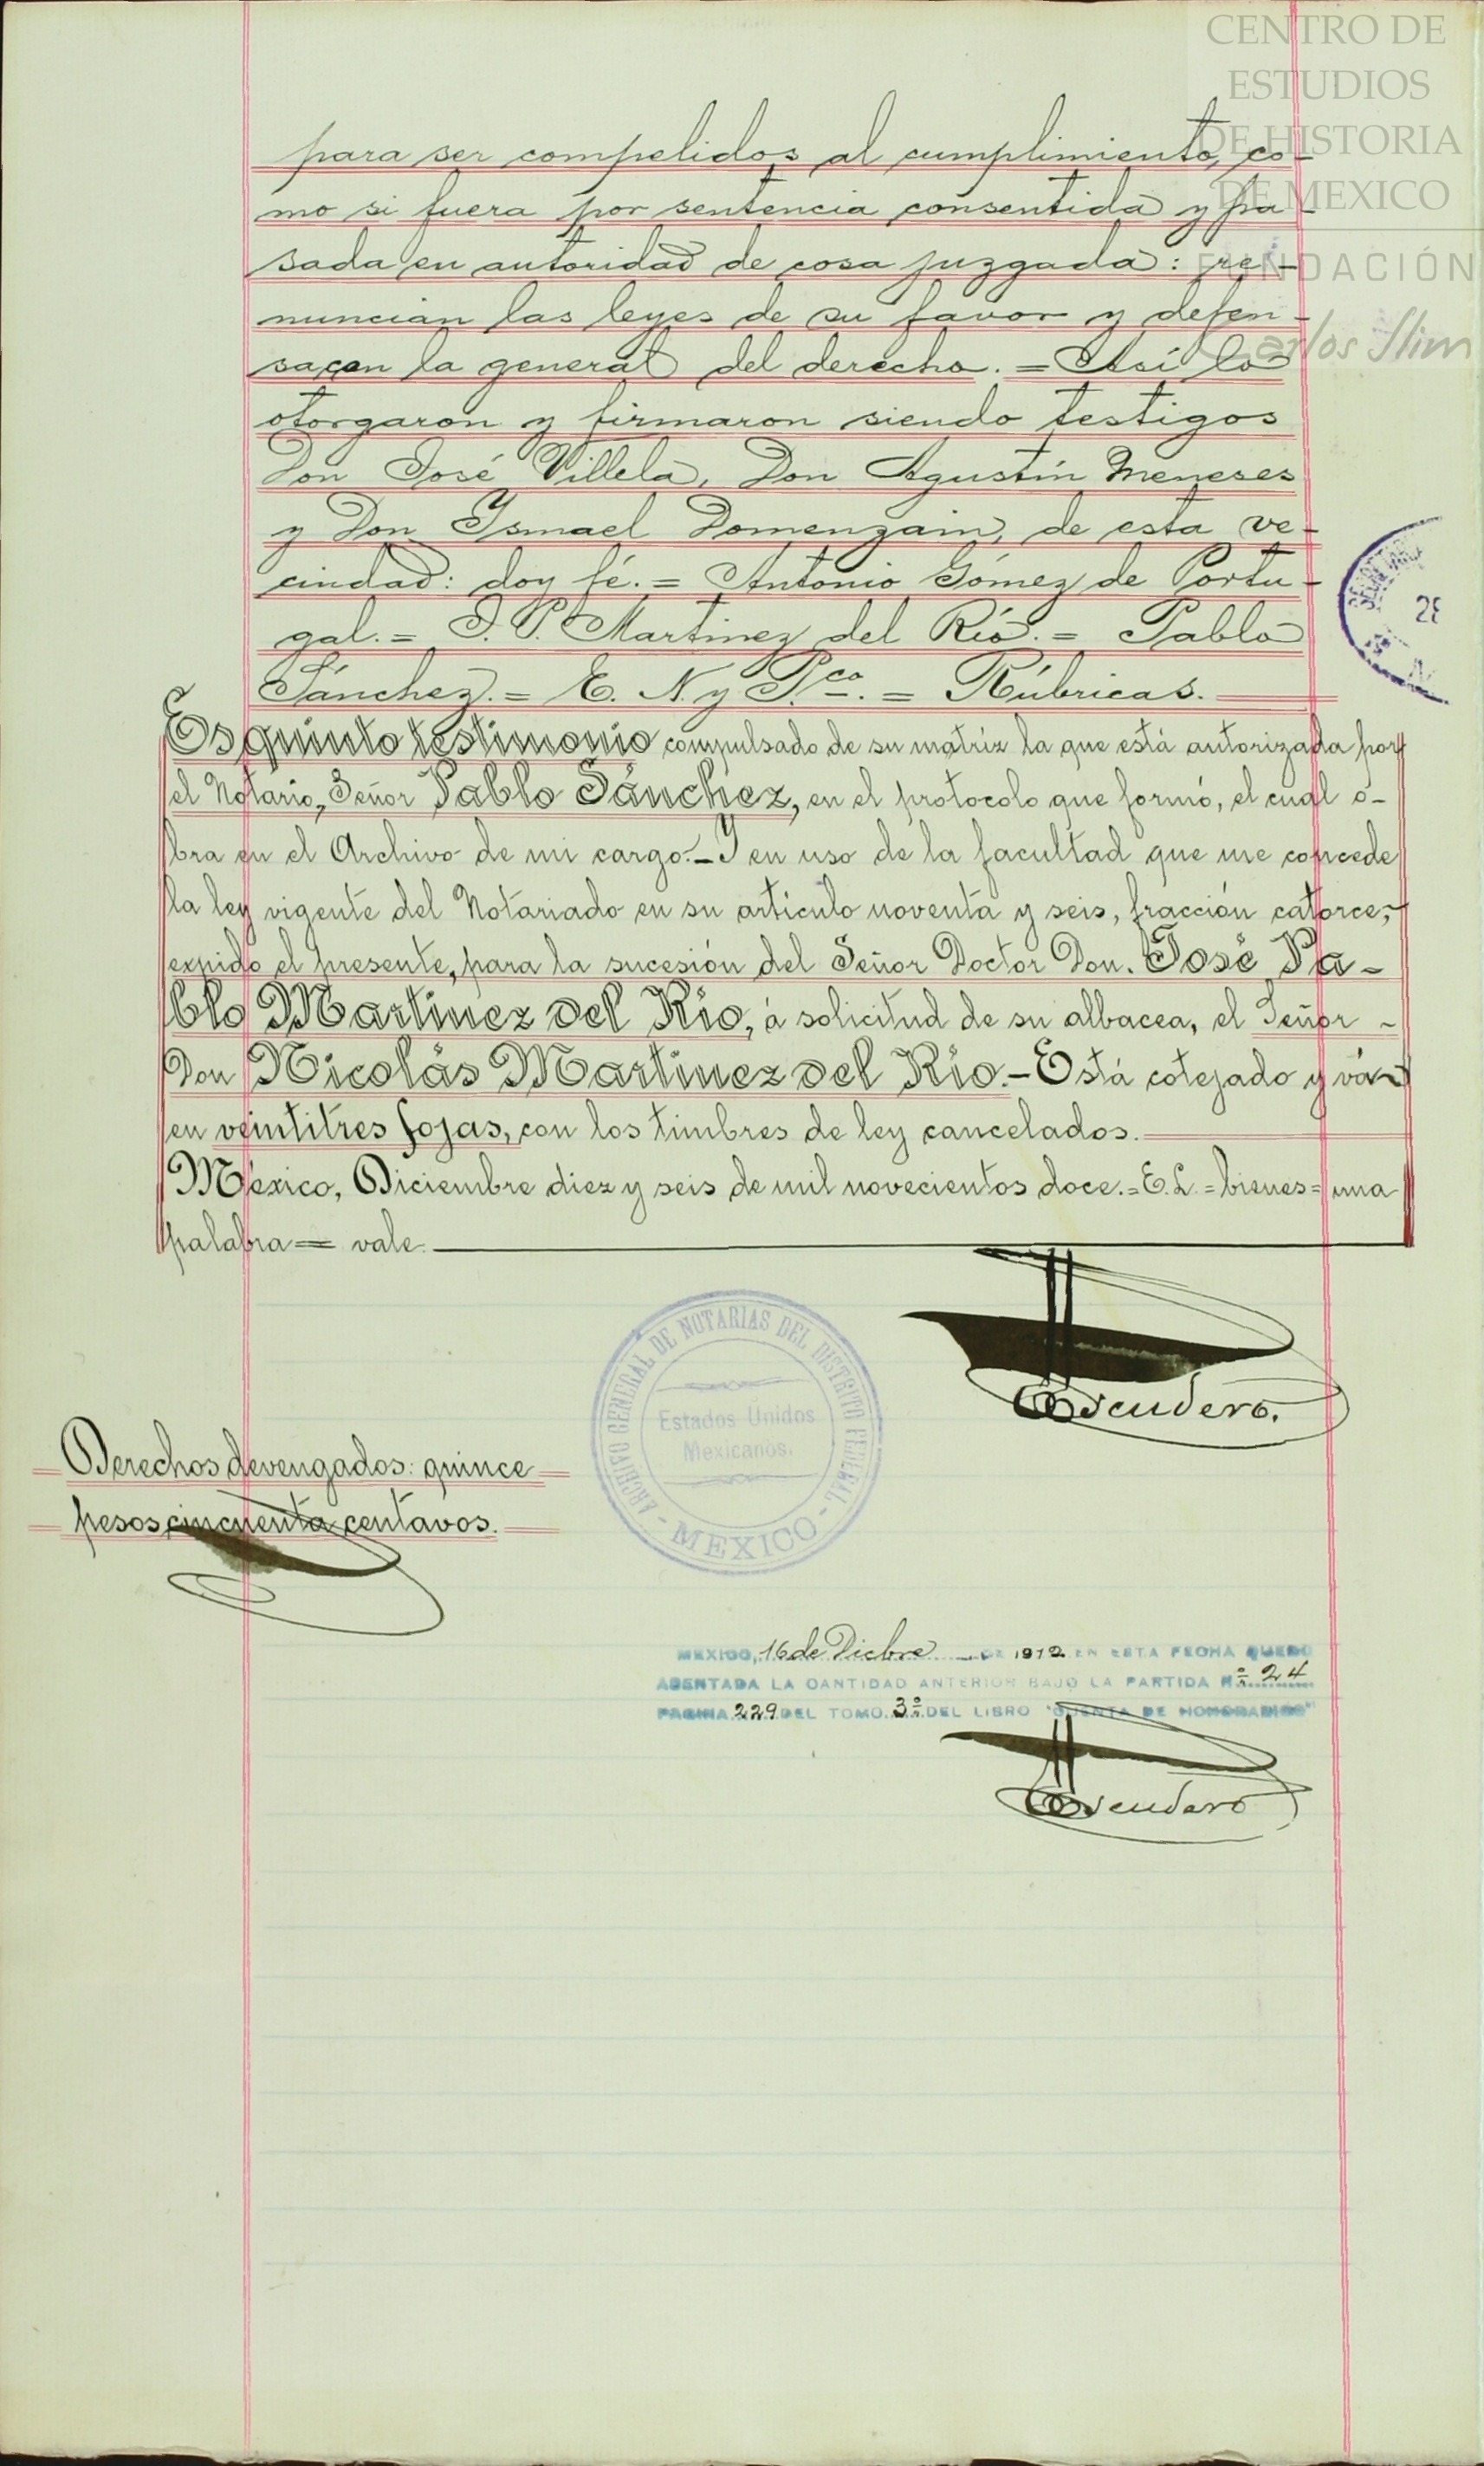 CENTRO DE
ESTUDIOS
DE HISTORIA
DE MEXICO
FUNDACIÓN
Carlos Slim
para ser compelidos al cumplimiento, co-
mo si fuera por sentencia consentida y pa-
sada en autoridad de cosa juzgada: re-
nuncian las leyes de su favor y defen-
sa con la general del derecho. = Así lo
otorgaron y firmaron siendo testigos
Don José Villela, Don Agustín Meneses
y Don Ismael Domenzain, de esta ve-
cindad: doy fé. = Antonio Gómez de Portu-
gal. = J. P. Martinez del Río. = Pablo
Sánchez. = E. N. y P.co. = Rúbricas.
Es quinto testimonio compulsado de su matriz la que está autorizada por
el Notario, Señor Pablo Sánchez, en el protocolo que formó, el cual o-
bra en el Archivo de mi cargo.- Y en uso de la facultad que me concede
la ley vigente del Notariado en su artículo noventa y seis, fracción catorce,
expido el presente, para la sucesión del Señor Doctor Don. José Pa-
blo Martinez del Río, á solicitud de su albacea, el Señor -
Don Nicolás Martinez del Río.- Está cotejado y vá
en veintitres fojas, con los timbres de ley cancelados.
México, Diciembre diez y seis de mil novecientos doce.=E.L.=bienes=una
palabra = vale.
Escudero.
ARCHIVO GENERAL DE NOTARIAS DEL DISTRITO FEDERAL
Estados Unidos
Mexicanos.
- MEXICO -
Derechos devengados: quince
pesos cincuenta centavos.
MEXICO, 16 de Dicbre DE 1912 EN ESTA FECHA QUEDO
ASENTADA LA CANTIDAD ANTERIOR BAJO LA PARTIDA Nº 24
PAGINA 229 DEL TOMO 3º DEL LIBRO "CUENTA DE HONORARIOS"
Escudero
28